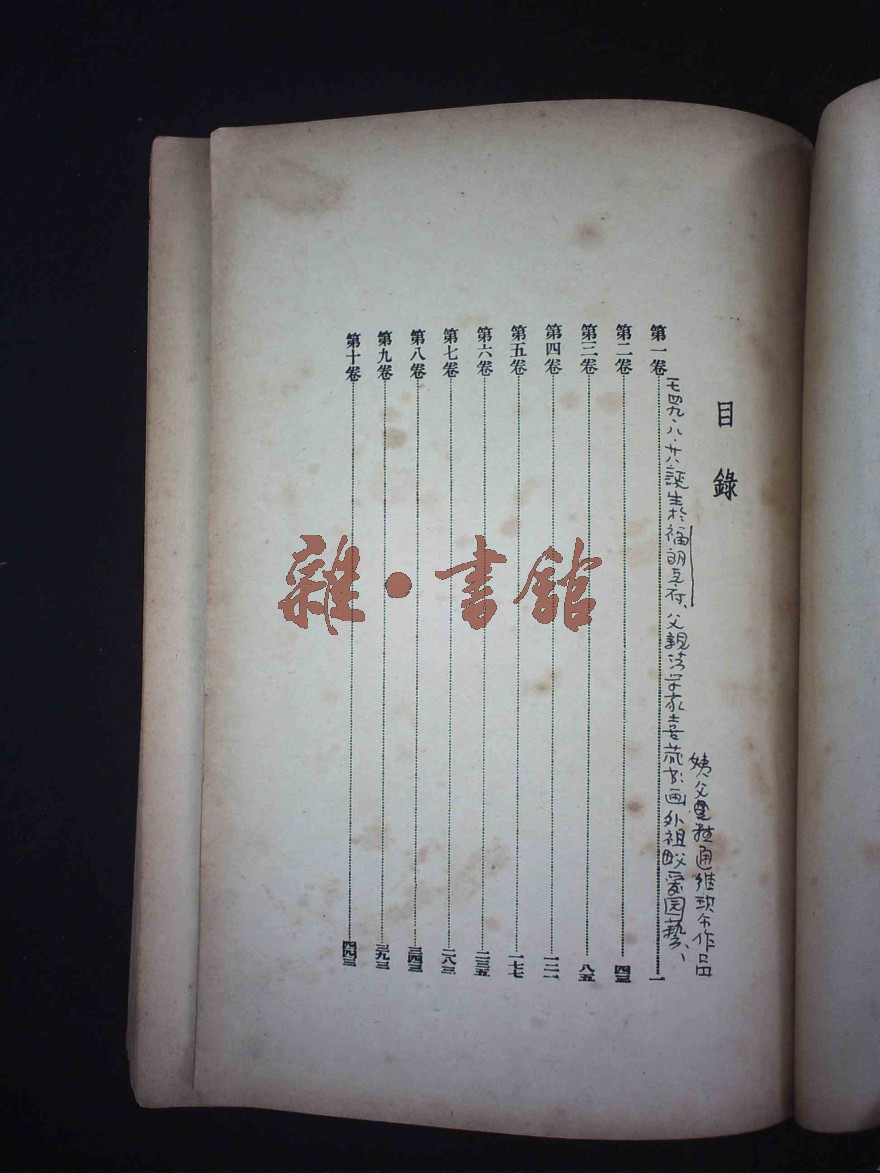 目錄
第一卷………一
第二卷………四三
第三卷………八五
第四卷………一二一
第五卷………一七七
第六卷………二三五
第七卷………二八三
第八卷………三四三
第九卷………三九三
第十卷………四四三
一七四九、八、廿八誕生於福朗克府、父親法学家喜藏书画外祖父爱园藝、
姨父通維
作品
雜·書館